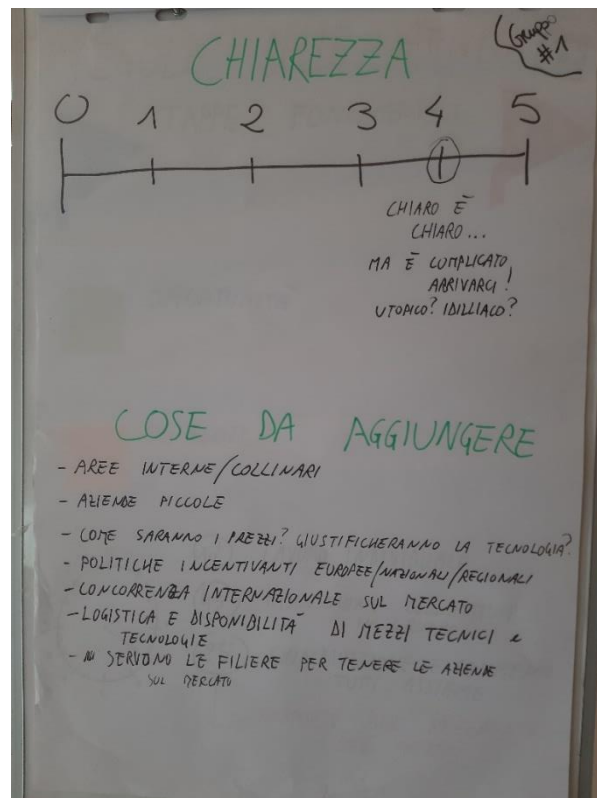 Gruppo
#1
CHIAREZZA
0 1 2 3 4 5
CHIARO È
CHIARO...
MA È COMPLICATO
ARRIVARCI!
UTOPICO? IDILLIACO?
COSE DA AGGIUNGERE
- AREE INTERNE/COLLINARI
- AZIENDE PICCOLE
- COME SARANNO I PREZZI? GIUSTIFICHERANNO LA TECNOLOGIA?
- POLITICHE INCENTIVANTI EUROPEE/NAZIONALI/REGIONALI
- CONCORRENZA INTERNAZIONALE SUL MERCATO
- LOGISTICA E DISPONIBILITÀ DI MEZZI TECNICI e
TECNOLOGIE
- SERVONO LE FILIERE PER TENERE LE AZIENDE
SUL MERCATO